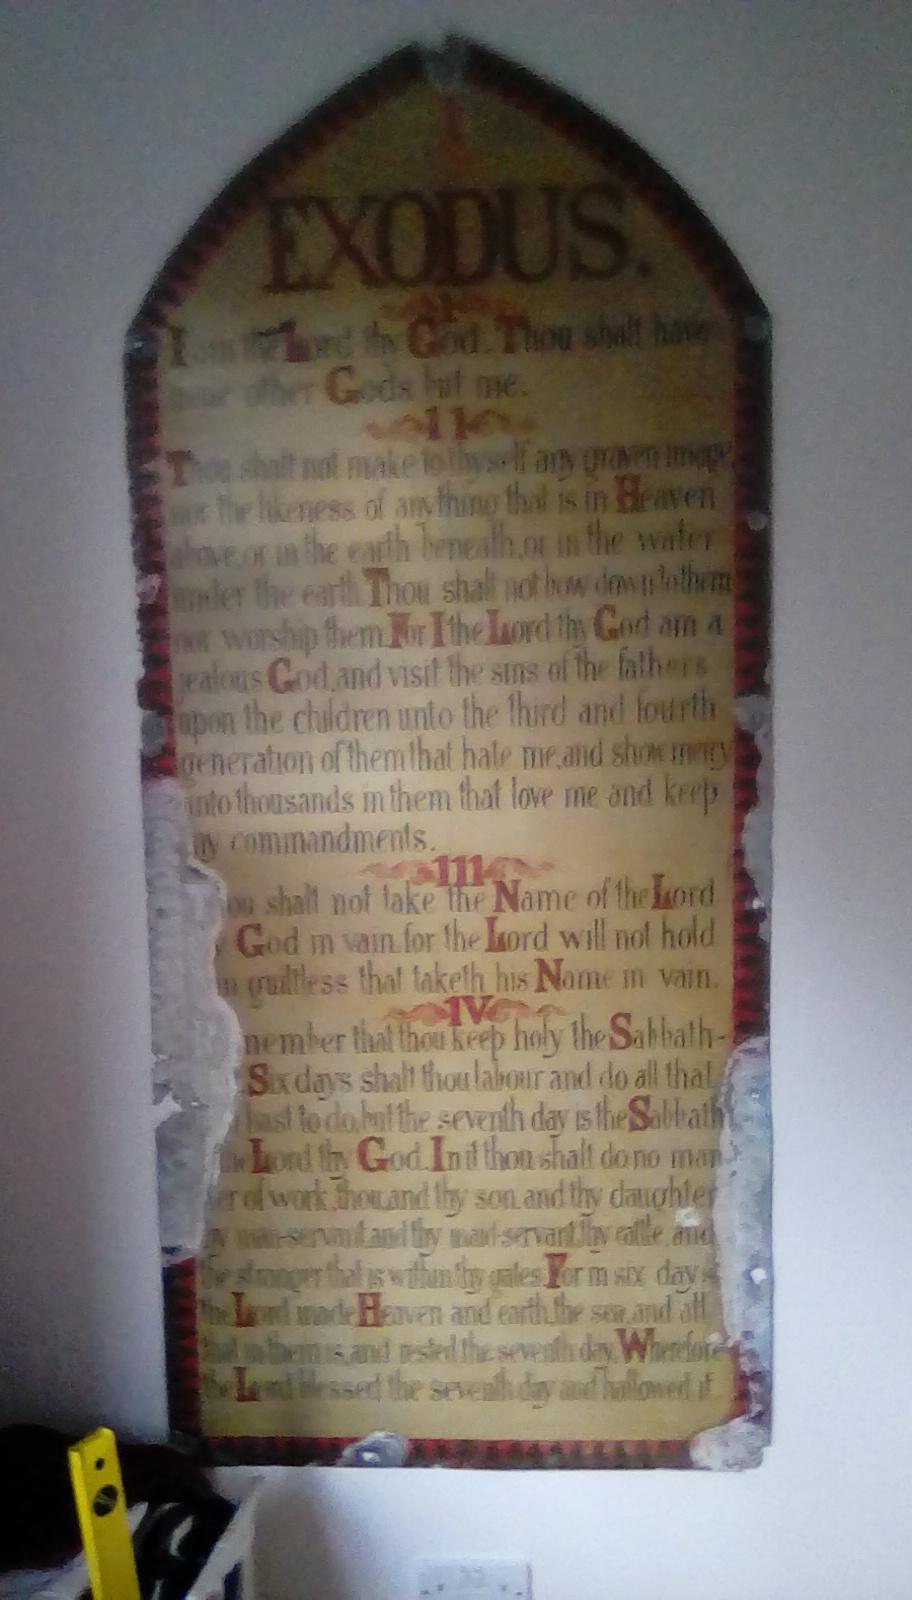 EXODUS.
I
I am the Lord thy God. Thou shalt have
none other Gods but me.
11
Thou shalt not make to thyself any graven image
nor the likeness of anything that is in Heaven
above, or in the earth beneath, or in the water
under the earth. Thou shalt not bow down to them
nor worship them. For I the Lord thy God am a
jealous God, and visit the sins of the fathers
upon the children unto the third and fourth
generation of them that hate me, and show mercy
unto thousands in them that love me and keep
my commandments.
111
ou shalt not take the Name of the Lord
God in vain, for the Lord will not hold
guiltless that taketh his Name in vain.
IV
member that thou keep holy the Sabbath-
Six days shalt thou labour and do all that
hast to do, but the seventh day is the Sabbath
the Lord thy God. In it thou shalt do no man
er of work, thou, and thy son, and thy daughter
y man-servant, and thy maid-servant, thy cattle, and
the stranger that is within thy gates. For in six days
the Lord made Heaven and earth, the sea, and all
that in them is, and rested the seventh day. Wherefore
the Lord blessed the seventh day and hallowed it